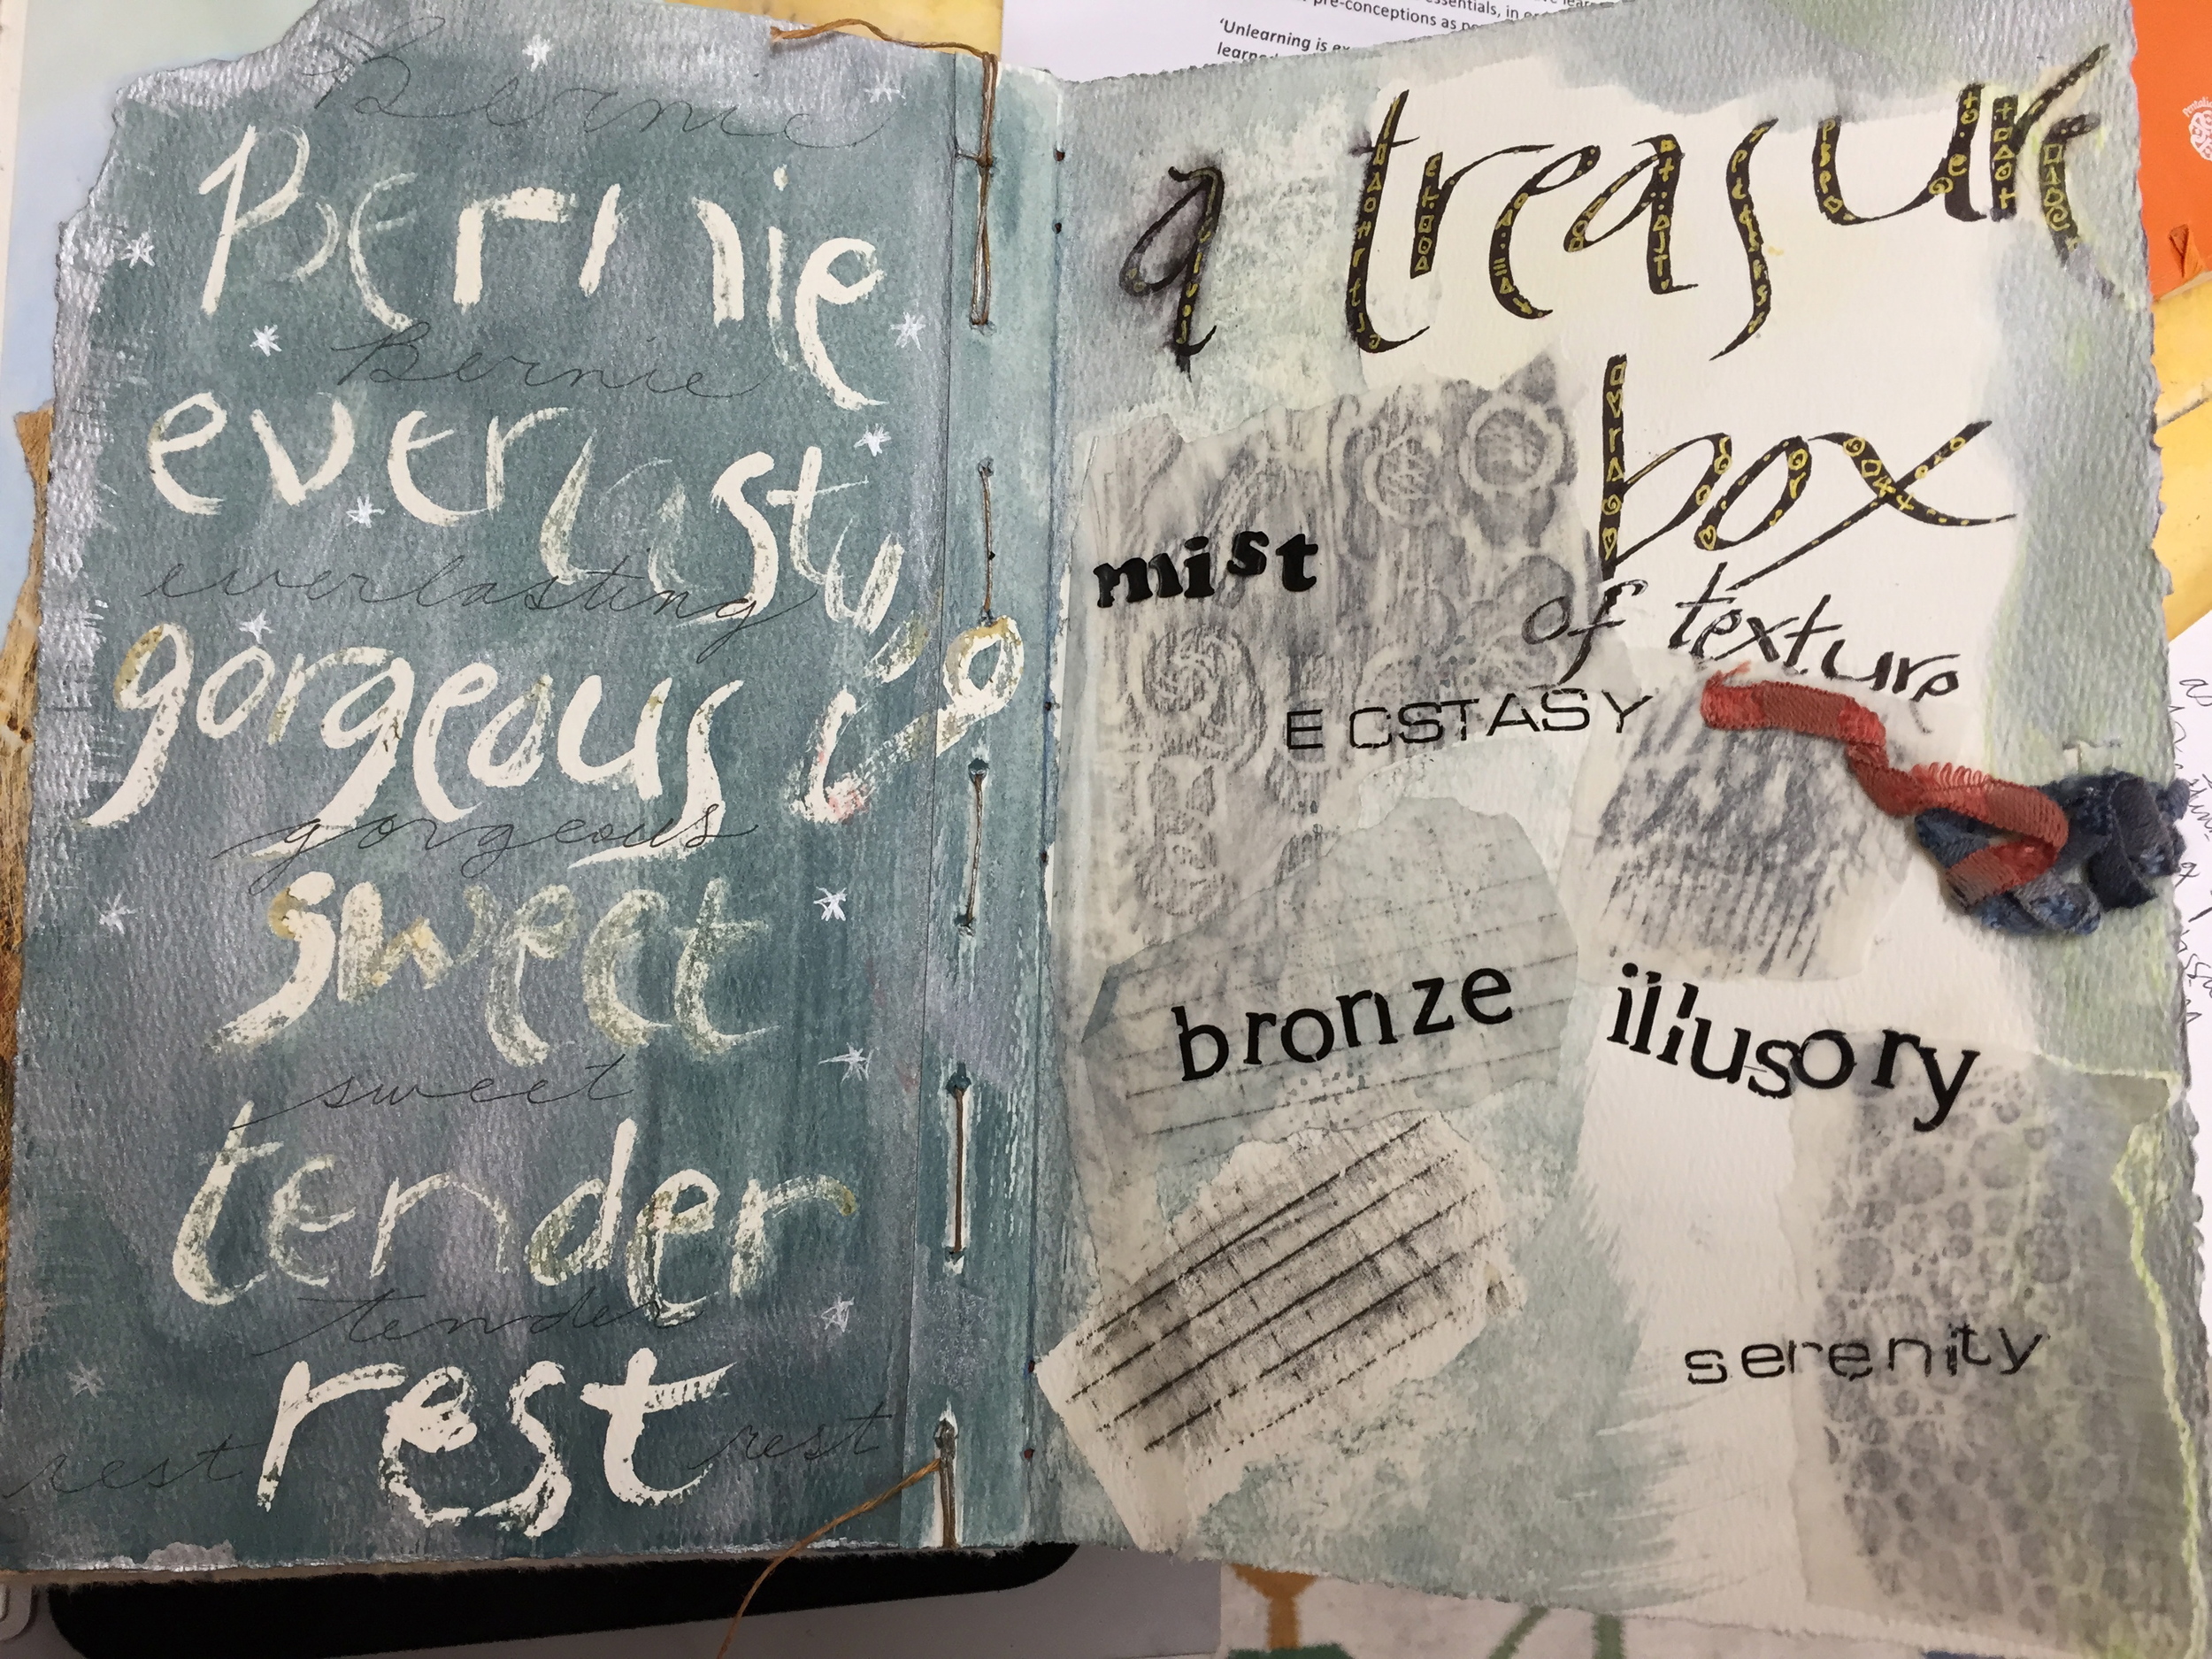 Bernie
Bernie
Bernie
everlasting
everlasting
gorgeous
gorgeous
sweet
sweet
tender
tender
rest
rest rest
essentials, in
pre-conceptions as
'Unlearning is
a treasure
box
of texture
mist
ECSTASY
bronze
illusory
serenity